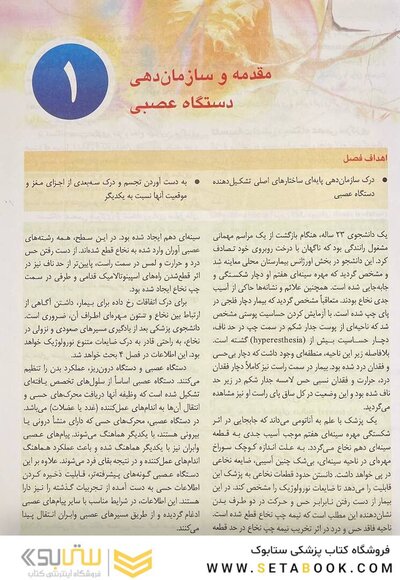 ۱
مقدمه و سازمان‌دهی
دستگاه عصبی
اهداف فصل
درک سازمان‌دهی پایه‌ای ساختارهای اصلی تشکیل‌دهنده
دستگاه عصبی
به دست آوردن تجسم و درک سه‌بعدی از اجزای مغز و
موقعیت آنها نسبت به یکدیگر
یک دانشجوی ۲۳ ساله، هنگام بازگشت از یک مراسم مهمانی
مشغول رانندگی بود که ناگهان با درخت روبروی خود تصادف
کرد. این دانشجو در بخش اورژانس بیمارستان محلی معاینه شد
و مشخص گردید که مهره سینه‌ای هفتم او دچار شکستگی و
جابه‌جایی شده است. همچنین علائم و نشانه‌ها حاکی از آسیب
جدی نخاع بودند. متعاقباً مشخص گردید که بیمار دچار فلجی در
پای چپ شده است. با آزمایش کردن حساسیت پوستی مشخص
شد که ناحیه‌ای از پوست جدار شکم در سمت چپ در حد ناف،
دچار حساسیت بیش از (hyperesthesia) گشته است.
بلافاصله زیر این ناحیه، منطقه‌ای وجود داشت که دچار بی‌حسی
و فقدان درد شده بود. بیمار در سمت راست نیز کاملاً دچار فقدان
درد، حرارت و فقدان نسبی حس لامسه جدار شکم در زیر حد
ناف شده بود و این وضعیت در کل ساق پای راست او نیز مشاهده
می‌گردید.
یک پزشک با علم به آناتومی می‌داند که جابجایی در اثر
شکستگی مهره سینه‌ای هفتم موجب آسیب جدی به قطعه
سینه‌ای دهم نخاع می‌گردد. به علت اندازه کوچک سوراخ
مهره‌ای در ناحیه سینه‌ای، بی‌شک چنین آسیبی، ضایعه نخاعی
در پی خواهد داشت. دانستن حدود قطعات نخاعی به پزشک این
قابلیت را می‌دهد تا ضایعات نورولوژیک را مشخص کند. در این
بیمار از دست رفتن نابرابر حس و حرکت در دو طرف بدن
نشان‌دهنده این مطلب است که نیمه چپ نخاع قطع شده است.
ناحیه فاقد حس و درد در اثر تخریب نیمه چپ نخاع در حد قطعه
سینه‌ای دهم ایجاد شده بود. در این سطح، همه رشته‌های
عصبی آوران وارد شده به نخاع قطع شده‌اند. از دست رفتن حس
درد و حرارت و لمس در سمت راست، پایین‌تر از حد ناف نیز در
اثر قطع‌شدن راه‌های اسپینوتالامیک قدامی و طرفی در سمت
چپ نخاع ایجاد شده بود.
برای درک اتفاقات رخ داده برای بیمار، داشتن آگاهی از
ارتباط بین نخاع و ستون مهره‌ای اطراف آن، ضروری است.
دانشجوی پزشکی بعد از یادگیری مسیرهای صعودی و نزولی در
نخاع، به راحتی قادر به درک ضایعات متنوع نورولوژیک خواهد
بود. این اطلاعات در فصل ۴ بحث خواهد شد.
دستگاه عصبی و دستگاه درون‌ریز، عملکرد بدن را تنظیم
می‌کنند. دستگاه عصبی اساساً از سلول‌های تخصص یافته‌ای
تشکیل شده است که وظیفه آنها دریافت محرک‌های حسی و
انتقال آن‌ها به اندام‌های عمل‌کننده (غدد یا عضلات) می‌باشد.
در دستگاه عصبی، محرک‌های حسی که دارای منشأ درونی یا
بیرونی هستند، با یکدیگر هماهنگ می‌شوند. پیام‌های عصبی
وابران نیز با یکدیگر هماهنگ شده و باعث عملکرد هماهنگ
اندام‌های عمل‌کننده و در نتیجه بقای فرد می‌شوند. علاوه بر این
دستگاه عصبی گونه‌های پیشرفته‌تر، قابلیت ذخیره کردن
اطلاعات حسی به دست آمده از تجربیات گذشته را نیز دارا
هستند. این اطلاعات، در شرایط مناسب با سایر پیام‌های عصبی
ادغام گردیده و از طریق مسیرهای عصبی وابران انتقال پیدا
می‌کنند.
فروشگاه کتاب پزشکی ستابوک
WWW.SETABOOK.COM
ستابوک
فروشگاه اینترنتی کتاب